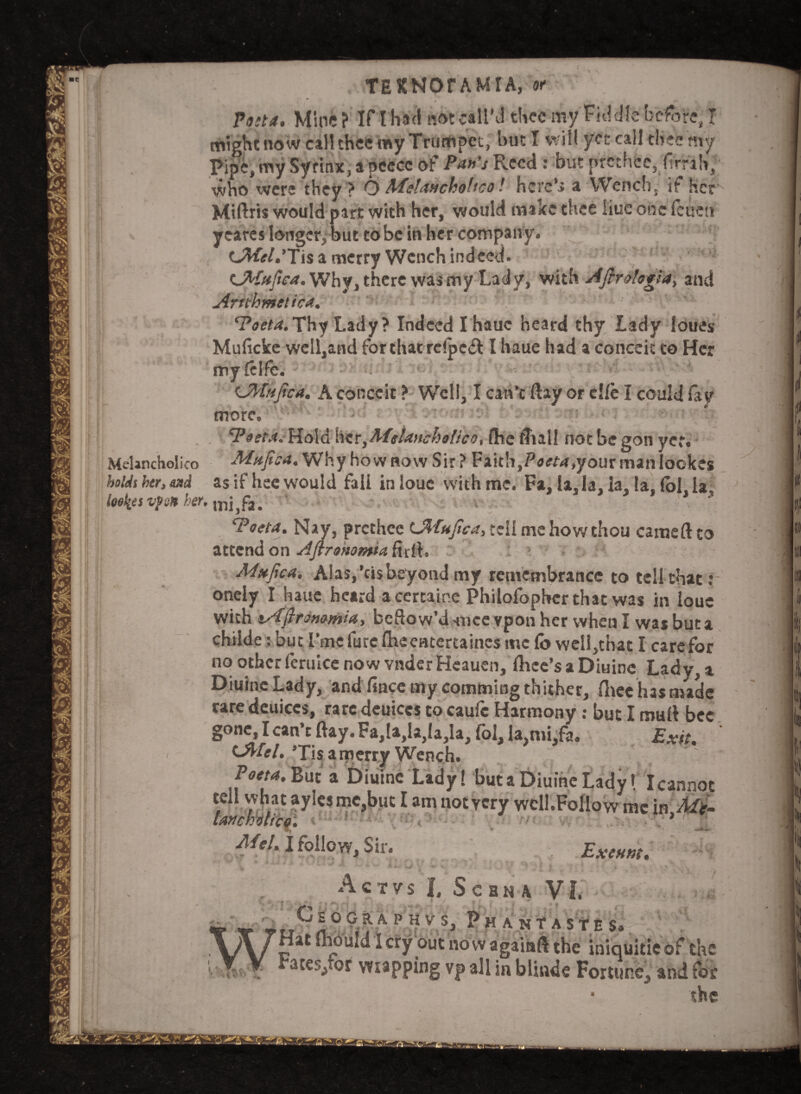 TEXNOΓAMIA, or
Poeta. Mine? If I had not call'd thee my Fiddle before, I
might now call thee my Trumpet, but I will yet call thee my
Pipe, my Syrinx, a peece of Pan's Reed : but prethee, sirrah,
who were they? O Melancholico! here's a Wench, if her
Mistris would part with her, would make thee liue one seuen
yeares longer, but to be in her company.
Mel. 'Tis a merry Wench indeed.
Musica. Why, there was my Lady, with Astrologia, and
Arithmetica.
Poeta. Thy Lady? Indeed I haue heard thy Lady loues
Musicke well, and for that respect I haue had a conceit to Her
my selfe.
Musica. A conceit? Well, I can't stay or else I could say
more.
Poeta. Hold her, Melancholico, she shall not be gon yet.
Melancholico
holds her, and
lookes vpon her.
Musica. Why how now Sir? Faith, Poeta, your man lookes
as if hee would fall in loue with me. Fa, la, la, la, la, sol, la,
mi, fa.
Poeta. Nay, prethee Musica, tell me how thou camest to
attend on Astronomia first.
Musica. Alas, 'tis beyond my remembrance to tell that :
onely I haue heard a certaine Philosopher that was in loue
with Astronomia, bestow'd mee vpon her when I was but a
childe : but I'me sure shee entertaines me so well, that I care for
no other seruice now vnder Heauen, shee's a Diuine Lady, a
Diuine Lady, and since my comming thither, shee has made
rare deuices, rare deuices to cause Harmony : but I must bee
gone, I can't stay. Fa, la, la, la, la, sol, la, mi, fa. Exit.
Mel. 'Tis a merry Wench.
Poeta. But a Diuine Lady! but a Diuine Lady! I cannot
tell what ayles me, but I am not very well. Follow me in, Me-
lancholico.
Mel. I follow, Sir. Exeunt.
ACTVS I. SCENA VI.
GEOGRAPHVS, PHANTASTES.
WHat should I cry out now against the iniquitie of the
Fates, for wrapping vp all in blinde Fortune, and for
the